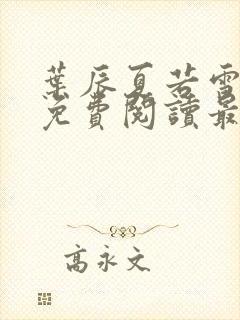 葉辰夏若雪
免費閱讀最
高永文